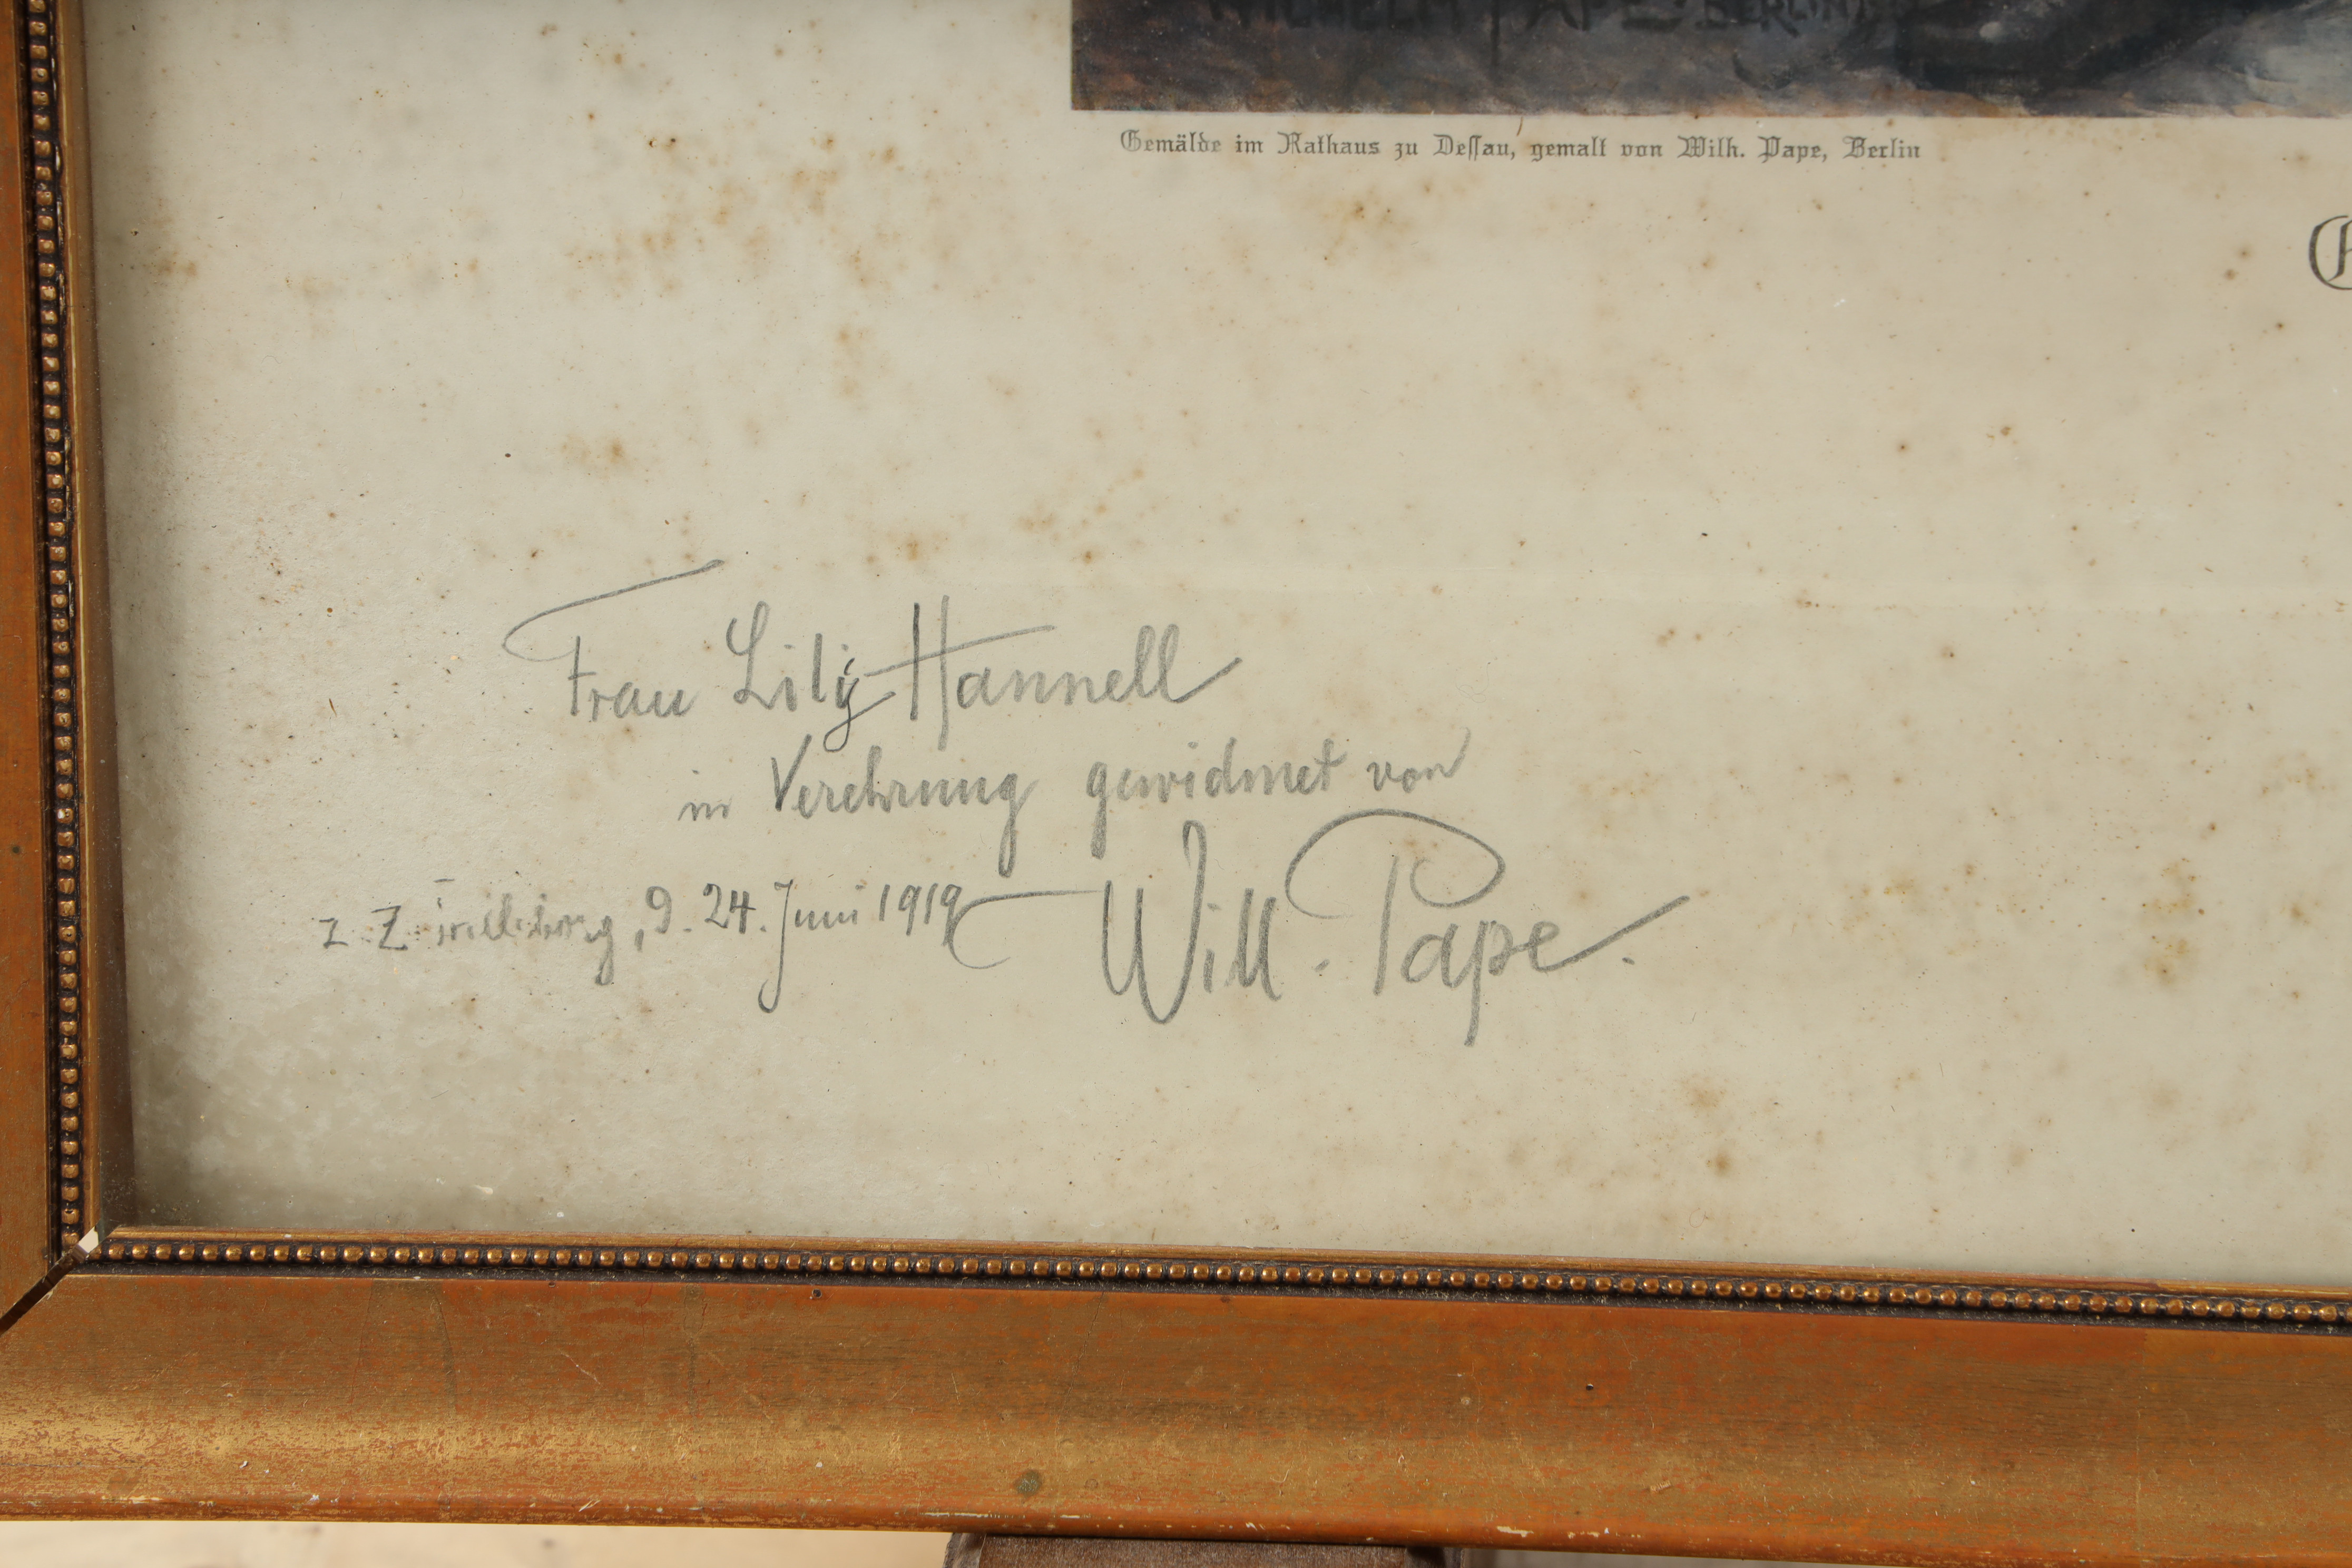 WILHELM PAPE · BERLIN
Gemälde im Rathaus zu Dessau, gemalt von Wilh. Pape, Berlin
Frau Lily Hannell
in Verehrung gewidmet von
z. Z. Trelleborg, d. 24. Juni 1919 Will. Pape.